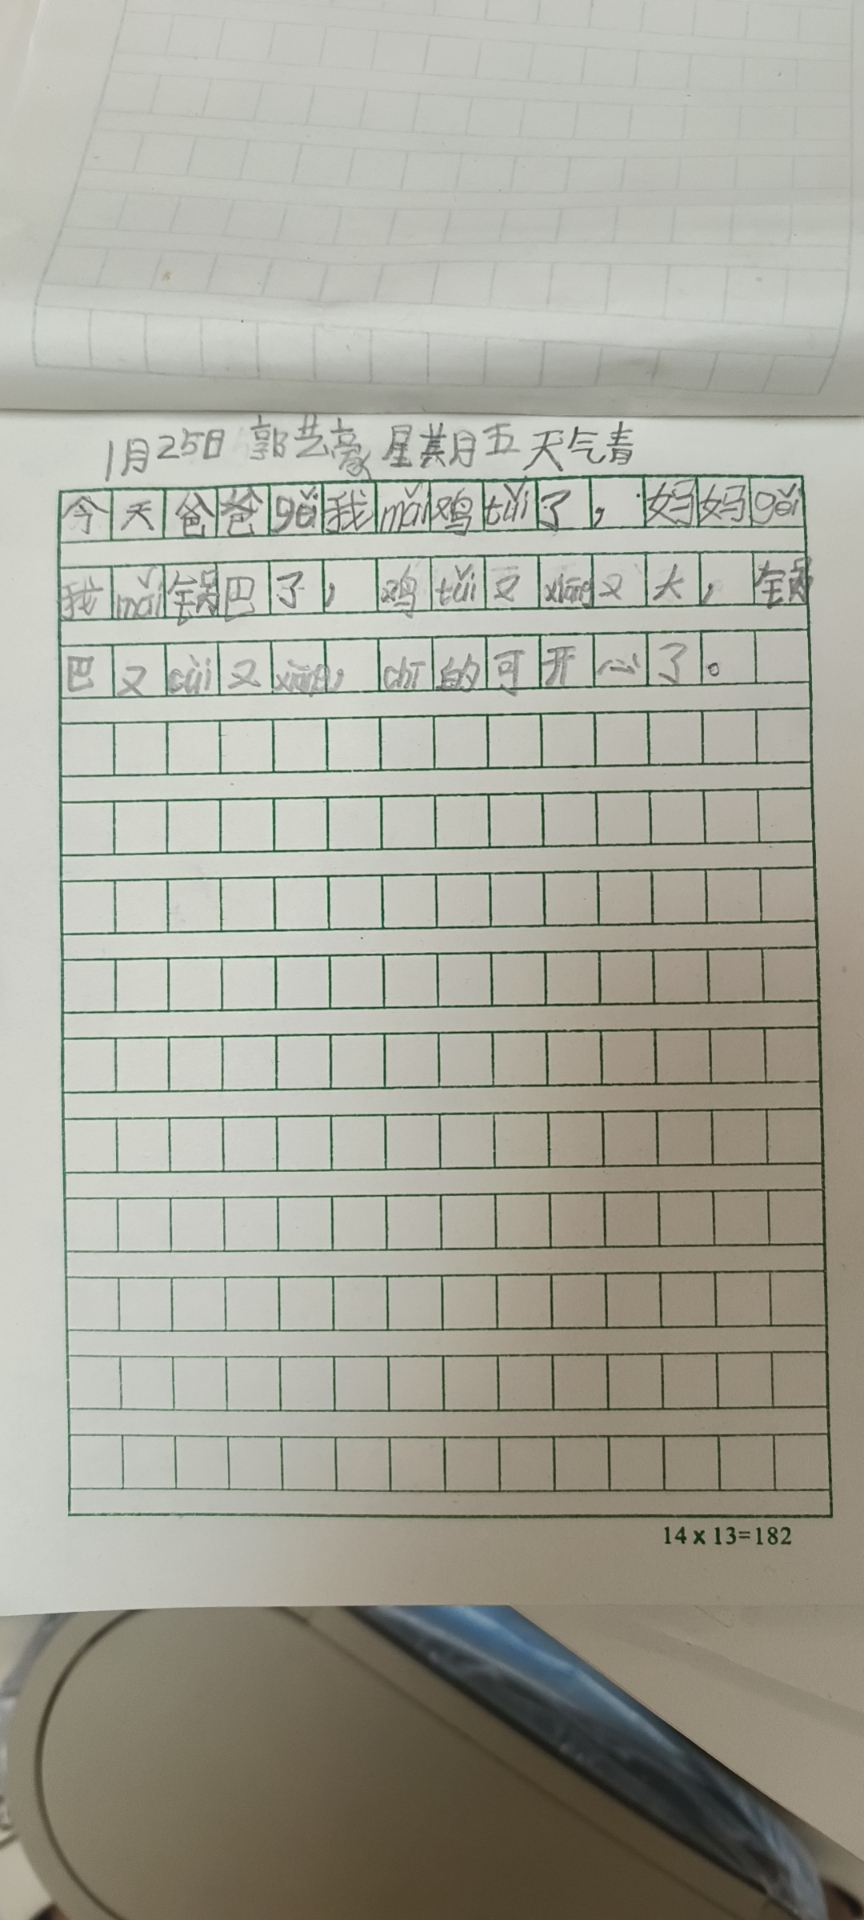 1月25日 郭艺豪 星期五 天气青
今天爸爸gěi我mǎi鸡tuǐ了，妈妈gěi
我mǎi锅巴了，鸡tuǐ又xiāng又大，锅
巴又cuì又xiāng，chī的可开心了。
14 x 13=182